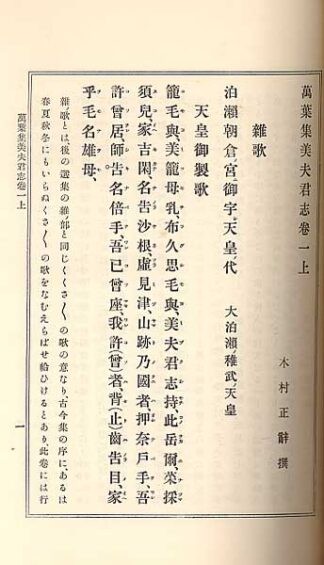 萬葉集美夫君志卷一上
木村正辭撰
雜歌
泊瀨朝倉宮御宇天皇代 大泊瀨稚武天皇
天皇御製歌
籠毛與、美籠母乳、布久思毛與、美夫君志持、此岳爾、菜採
須兒、家吉閑、名告沙根、虛見津、山跡乃國者、押奈戶手、吾
許曾居、師吉名倍手、吾己曾座、我許(曾)者、背(止)齒告目、家
乎毛名雄母、
雜歌とは後の選集の雜部と同じくくさ〲の歌の意なり、古今集の序に、あるは
春夏秋冬にもいらぬくさ〲の歌をなむえらばせ給ひけるとあり、此卷には行
萬葉集美夫君志卷一上
一